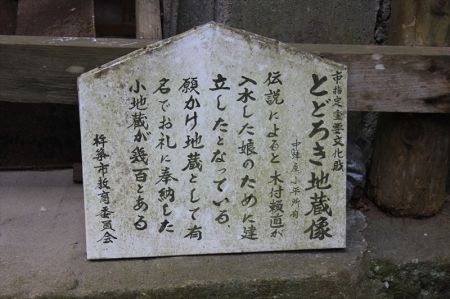 市指定重要文化財
とどろき地蔵像
中津屋 平所有
伝説によると木付頼直が
入水した娘のために建
立したとなっている。
願かけ地蔵として有
名でお礼に奉納した
小地蔵が幾百とある
杵築市教育委員会